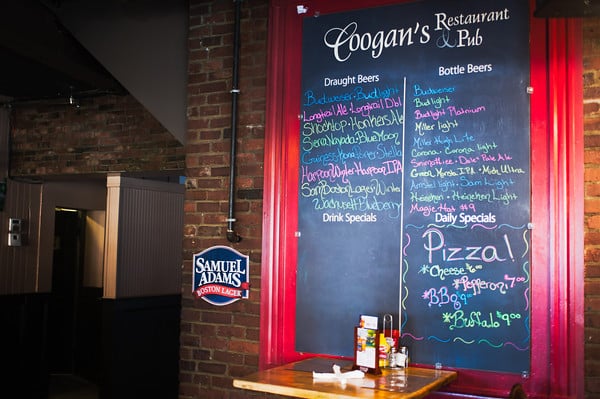 Coogan's Restaurant & Pub
Draught Beers
Budweiser • Bud light
Longtrail Ale • Longtrail Dbl
Shocktop • Honkers Ale
Sierra Nevada • Blue Moon
Guinness • Kona • Stella
Harpoon Winter • Harpoon IPA
Sam Boston Lager • Winter
Wachusett Blueberry
Drink Specials
Bottle Beers
Budweiser
Bud light
Bud light Platinum
Miller light
Miller High Life
Corona • Corona light
Pale Ale
IPA • Mich Ultra
Amstel light • Sam Light
Heineken • Heineken Light
Magic Hat #9
Daily Specials
Pizza!
*Cheese $6.00
*Pepperoni $7.00
*BBQ $9.00
*Buffalo $9.00
SAMUEL ADAMS
BOSTON LAGER